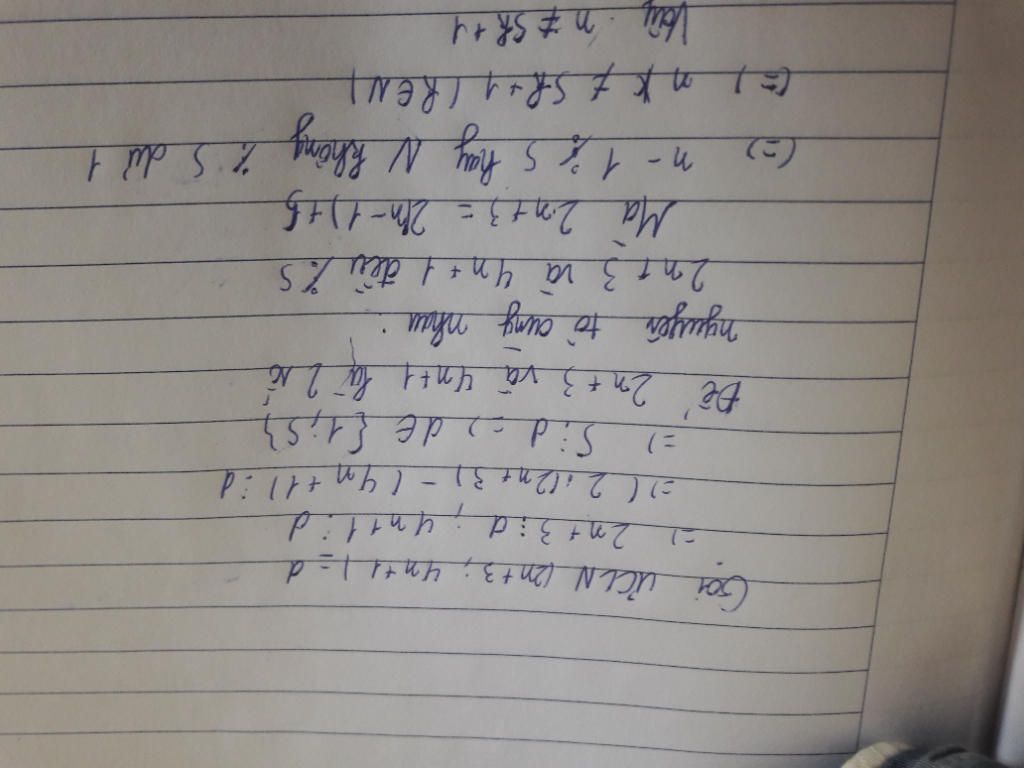 Gọi ƯCLN (2n+3; 4n+1) = d
=) 2n+3 ⋮ d ; 4n+1 ⋮ d
=) (2.(2n+3) - (4n+1) ⋮ d
=) 5 ⋮ d =) d ∈ {1;5}
Để 2n+3 và 4n+1 là 2 số
nguyên tố cùng nhau :
2n+3 và 4n+1 đều ⋮̸ 5
Mà 2n+3 = 2(n-1)+5
(=) n-1 ⋮̸ 5 hay N không ⋮ 5 dư 1
(=) n ≠ 5k+1 (k∈N)
Vậy n ≠ 5k+1